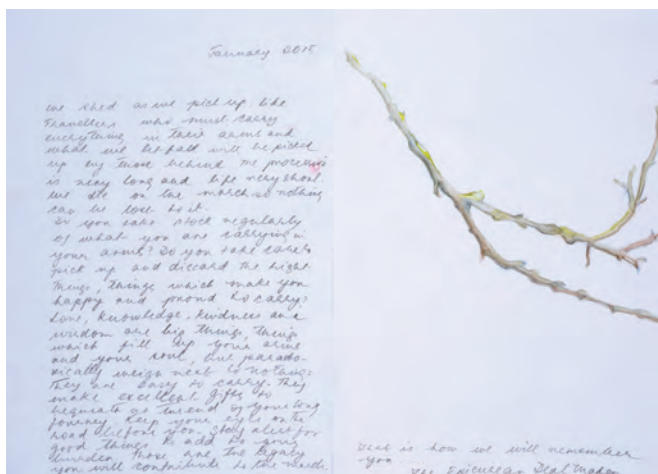 January 2015
We shed as we pick up, like
travellers who must carry
everything in their arms and
what we let fall will be picked
up by those behind. The procession
is very long and life very short.
We die on the march so nothing
can be lost to it.
Do you take stock regularly
of what you are carrying in
your arms? Do you take care to
pick up and discard the right
things, things which make you
happy and proud to carry?
Love, knowledge, kindness and
wisdom are big things, things
which fill up your arms
and your soul, but parado-
xically weigh next to nothing.
They are easy to carry. They
make excellent gifts to
bequeath at the end of your long
journey. Keep your eyes on the
road before you. Stay alert for
good things to add to your
burden. Those are the legacy
you will contribute to the march.
That is how we will remember
you
The Epicurean Deal Maker